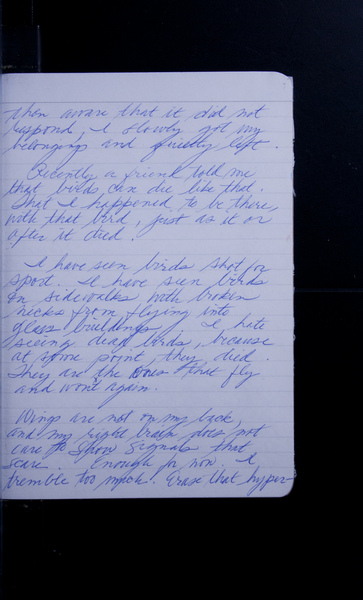 then aware that it did not
respond, I slowly got my
belongings and quietly left.
Recently a friend told me
that birds can die like that.
That I happened to be there,
with that bird, just as it or
after it died.
I have seen birds shot for
sport. I have seen birds
on sidewalks with broken
necks from flying into
glass buildings. I hate
seeing dead birds, because
at some point, they died.
They are the ones that fly
and won't again.
Wings are not on my back,
and my right brain does not
care to show signals that
scare. Enough for now. I
tremble too much. Erase that hyper-